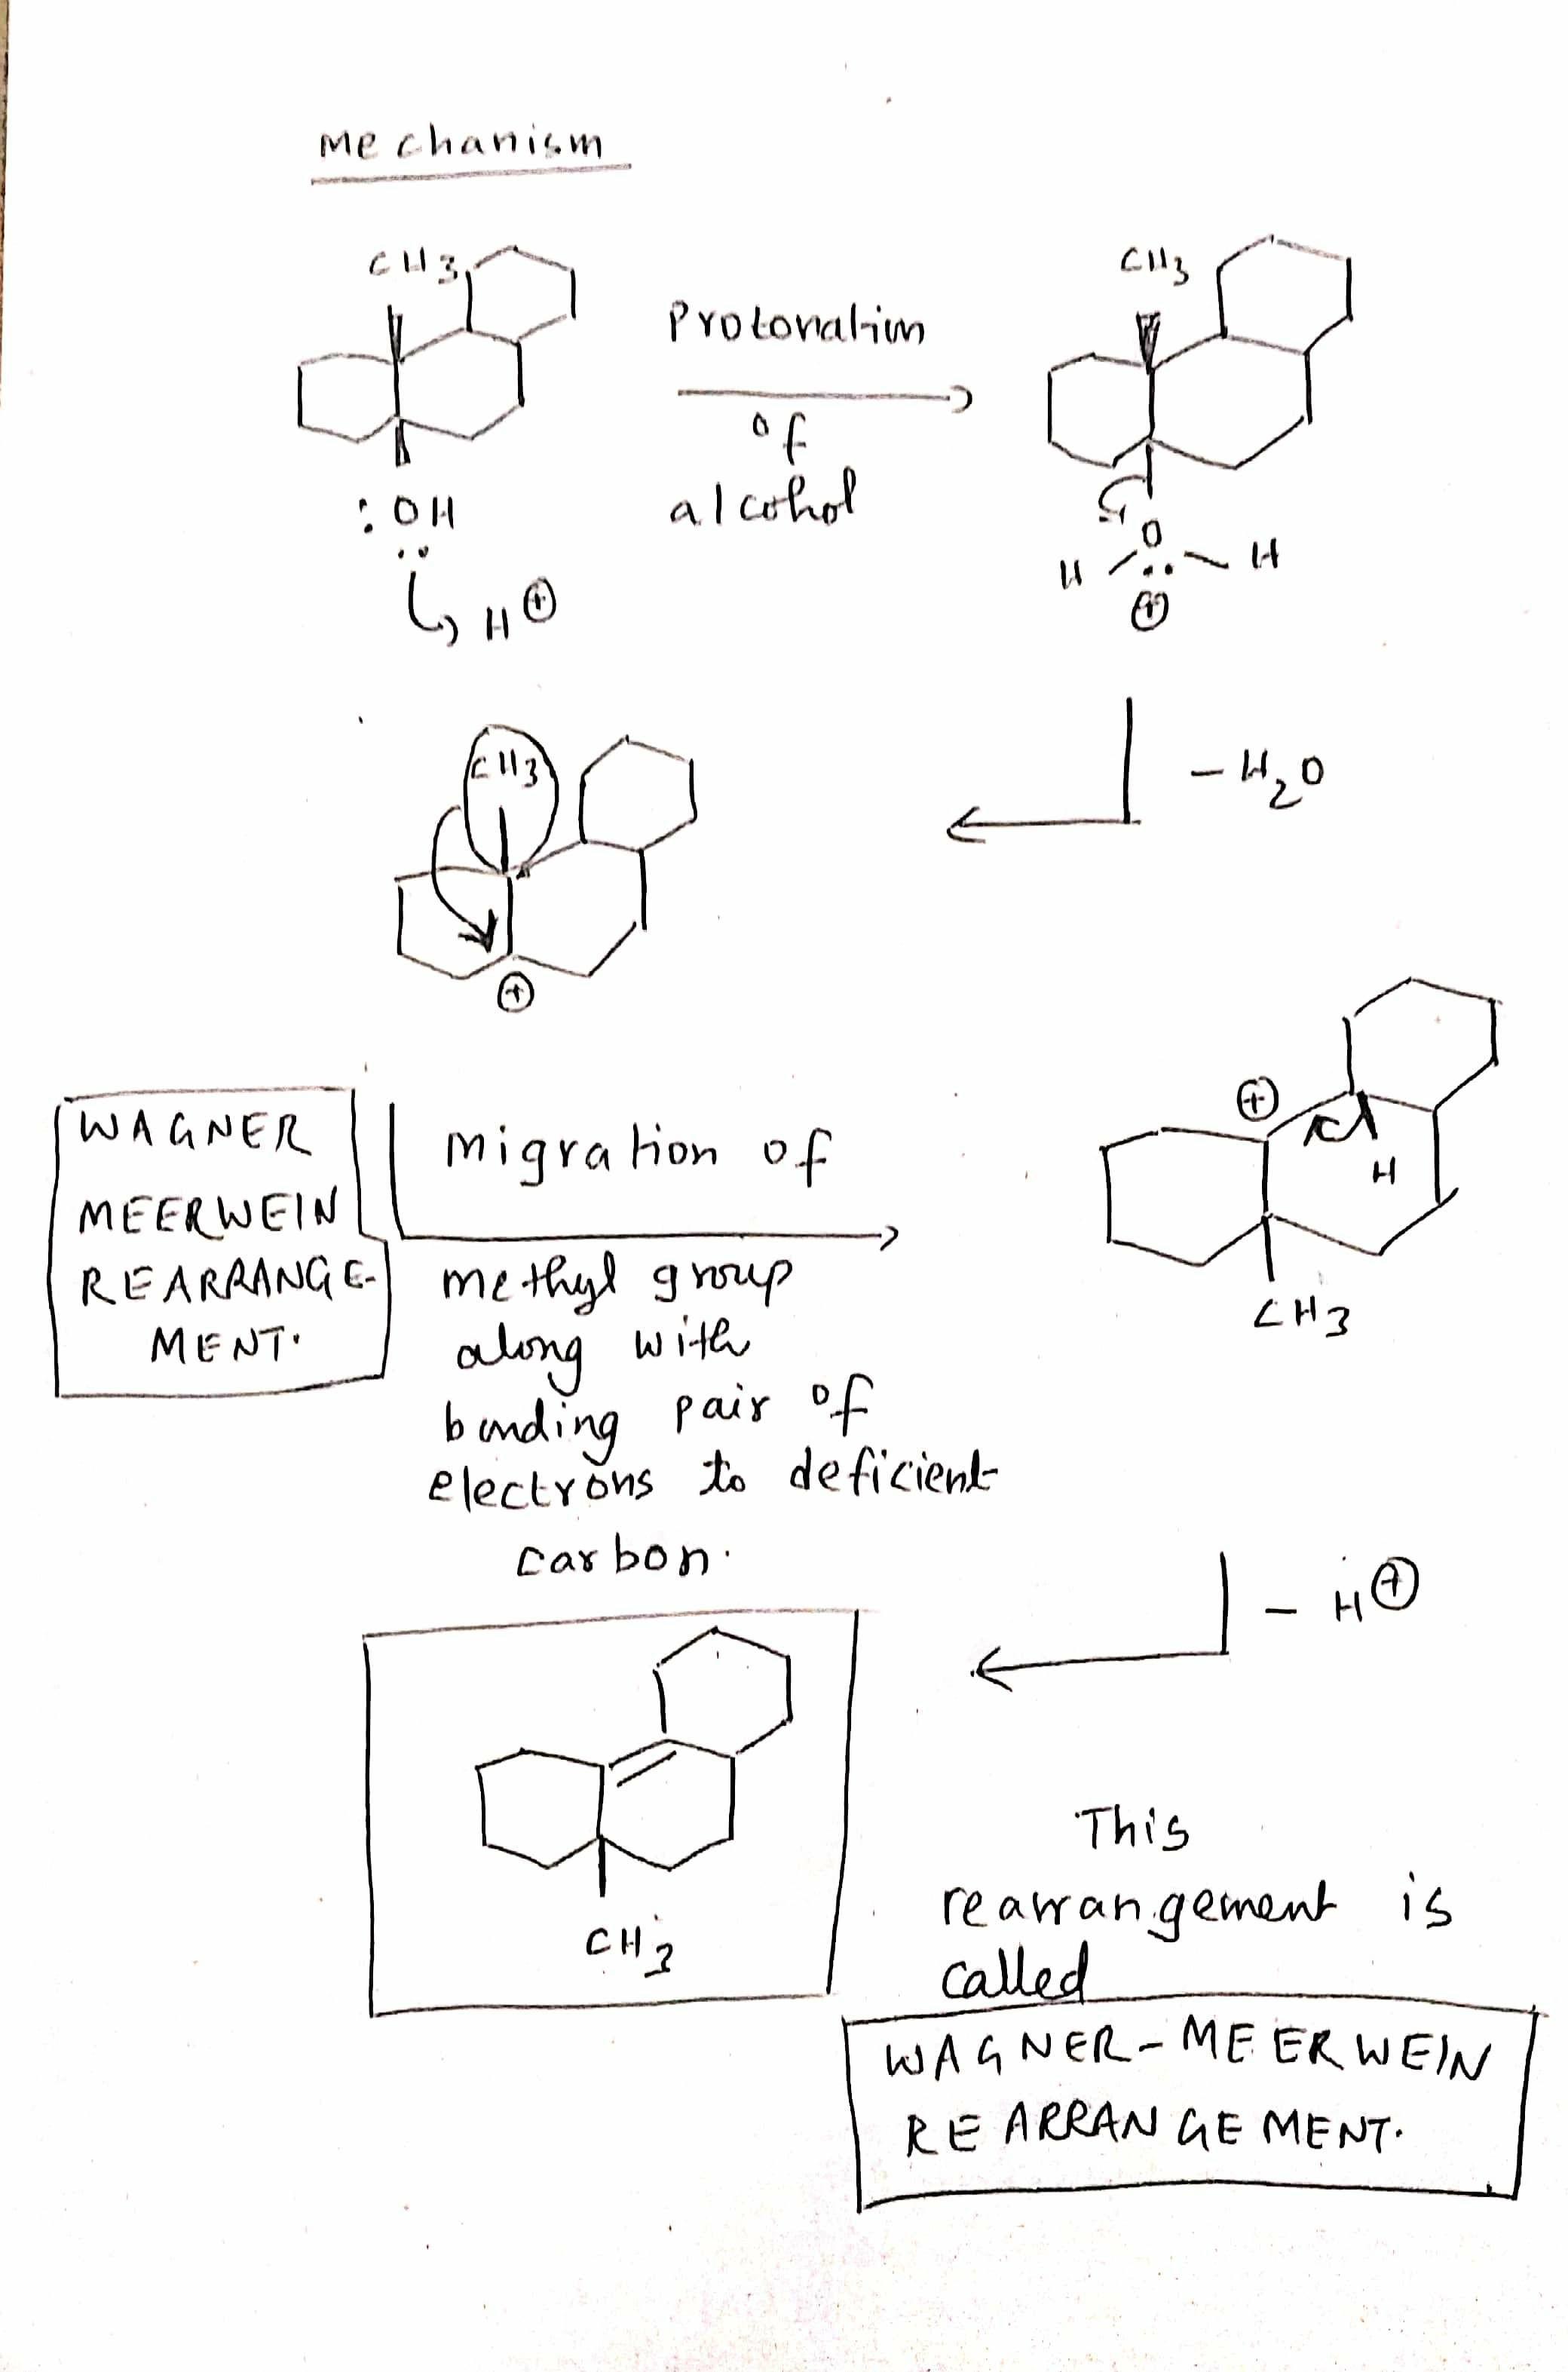 Mechanism
CH3
CH3
Protonation
of
alcohol
:OH
H⊕
O
H H
⊕
- H2O
CH3
⊕
⊕
H
CH3
WAGNER
MEERWEIN
REARRANGE-
MENT.
migration of
methyl group
along with
bonding pair of
electrons to deficient
carbon.
- H⊕
CH3
This
rearrangement is
called
WAGNER-MEERWEIN
REARRANGEMENT.